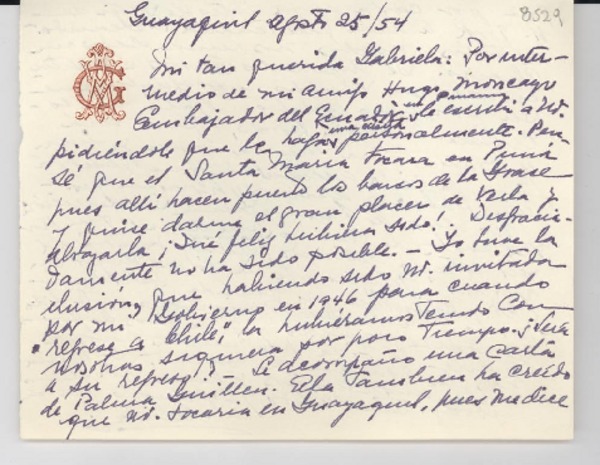 8529
Guayaquil agosto 25/54
Mi tan querida Gabriela: Por inter-
medio de mi amigo Hugo Moncayo
Embajador del Ecuador en le escribí a Ud.
una visita
pidiéndole que le haga personalmente. Pen-
sé que el Santa María tocara en Puná
pues allí hacen puerto los barcos de la Grace
y quise darme el gran placer de verla y
abrazarla ¡Qué feliz hubiera sido! Desgracia-
damente no ha sido posible. - Yo tuve la
ilusión que habiendo sido Ud. invitada
por mi Gobierno en 1946 para cuando
"regrese a Chile", la hubiéramos tenido con
nosotros siquiera por poco tiempo. ¡Será
a su regreso! Le acompaño una carta
de Palma Guillén. Ella también ha creído
que Ud. tocaría en Guayaquil, pues me dice